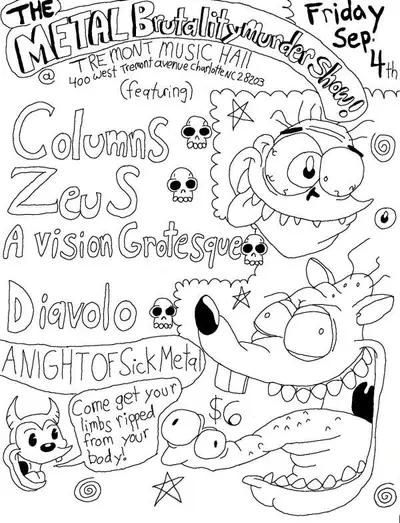 THE METAL Brutality Murder Show!
@ TREMONT MUSIC HAll
400 West Tremont avenue Charlotte NC 28203
Friday
Sep.
4th
(featuring)
Columns
Zeus
A vision Grotesque
Diavolo
A NIGHT OF Sick Metal
Come get your
limbs ripped
from your
body!
$6